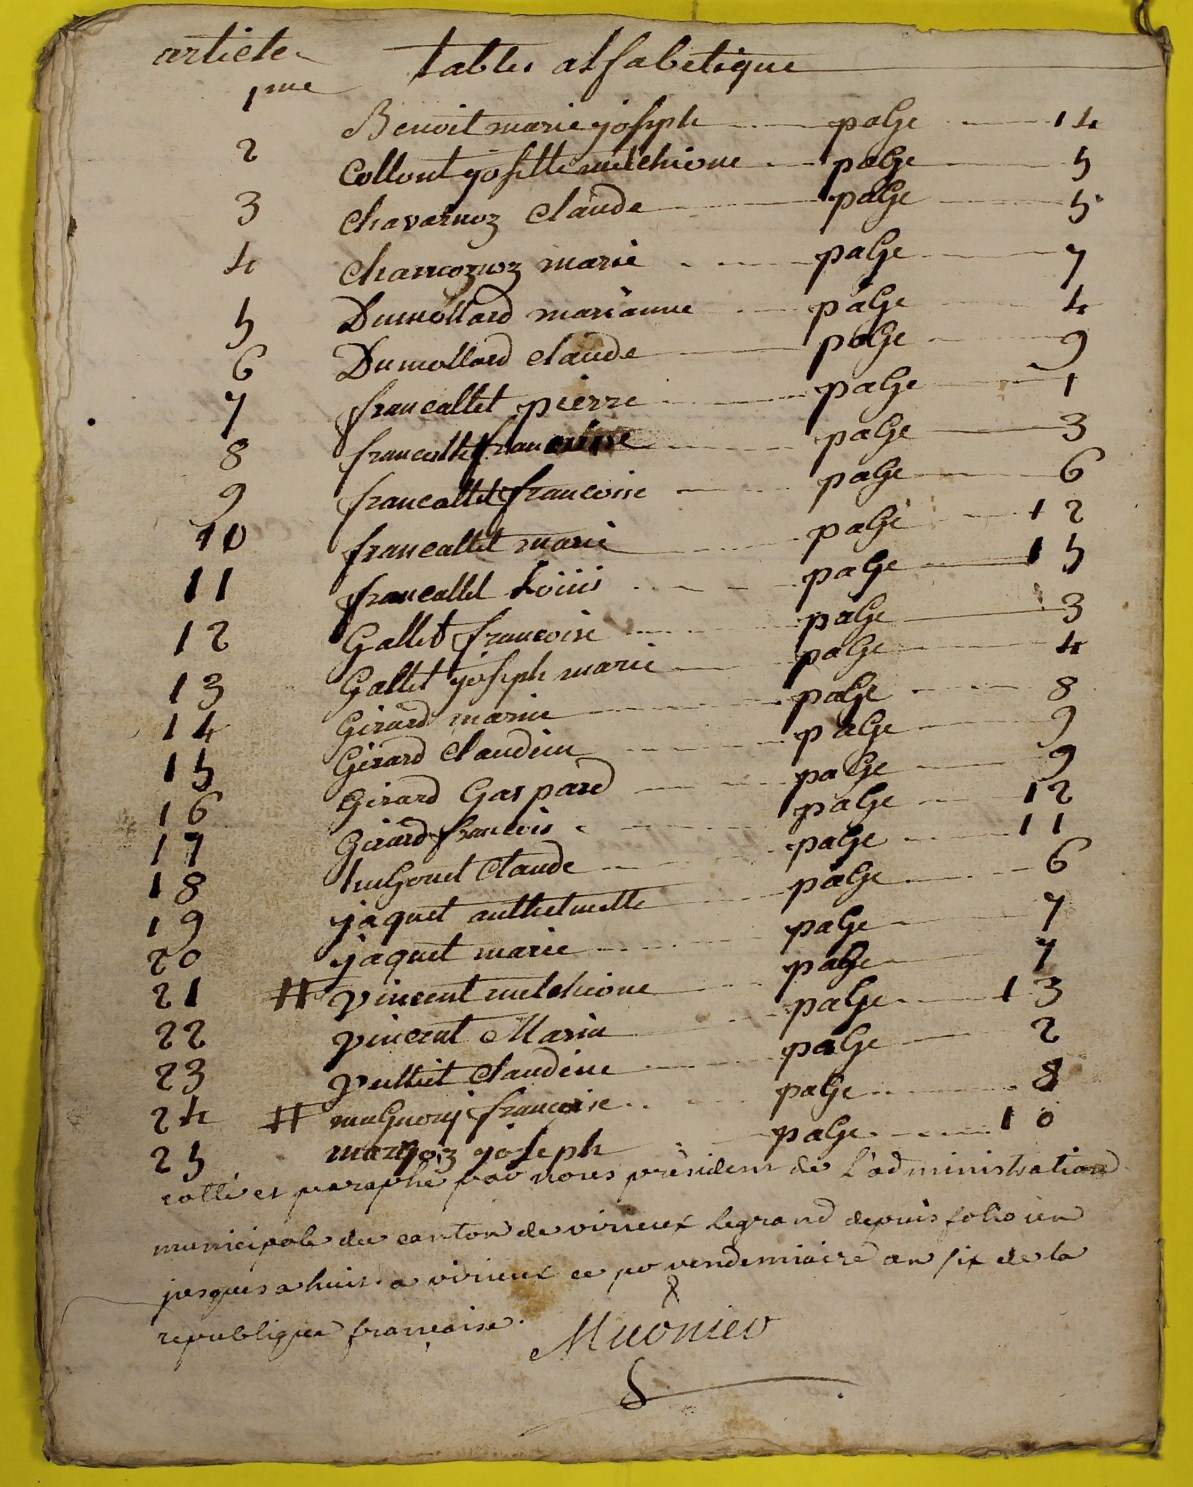 article tables alfabetique
1me Benoit marie joseph page 14
2 Collont josette melchione page 5
3 Chavarnoz Claude page 5
4 Chamoznoz marie page 7
5 Dumollard marianne page 4
6 Dumollard claude page 9
7 francallet pierre page 1
8 francallet page 3
9 francallet francoise page 6
10 francallet marie page 12
11 francallet Loüis page 15
12 Gallet francoise page 3
13 Gallet joseph marie page 4
14 Girard marie page 8
15 Girard Claudine page 9
16 Girard Gaspard page 9
17 Girard francois page 12
18 Claude page 11
19 jaquet anthelmette page 6
20 jaquet marie page 7
21 # vincent melchione page 7
22 vincent Marie page 13
23 Claudine page 2
24 # francoise page 8
25 joseph page 10
cotté et paraphé par nous président de L'administration
municipale du canton de virieux legrand depuis folio un
jusques a huit a virieux ce pr vendemiaire an six de la
republique francaise.
Mugnier